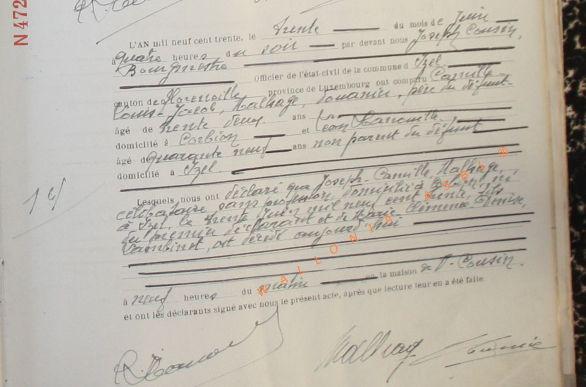 N 472
L'AN mil neuf cent trente, le trente du mois de Juin
à quatre heures du soir par devant nous Joseph Cousin,
Bourgmestre Officier de l'état-civil de la commune d' Izel
canton de Florenville province de Luxembourg ont comparu Camille
Louis Jacob, Malhage, douanier, père du défunt
âgé de trente deux ans et Léon
domicilié à Corbion
âgé quarante neuf ans non parent du défunt
domicilié à Izel
Lesquels nous ont déclaré que Joseph Camille Malhage,
célibataire sans profession domicilié à Corbion, né
à Izel, le trente Juin mil neuf cent trente, fils
du premier déclarant et de Marie
est décédé aujourd'hui
à neuf heures du matin en la maison de V. Cousin.
et ont les déclarants signé avec nous le présent acte, après que lecture leur en a été faite.
Malhage